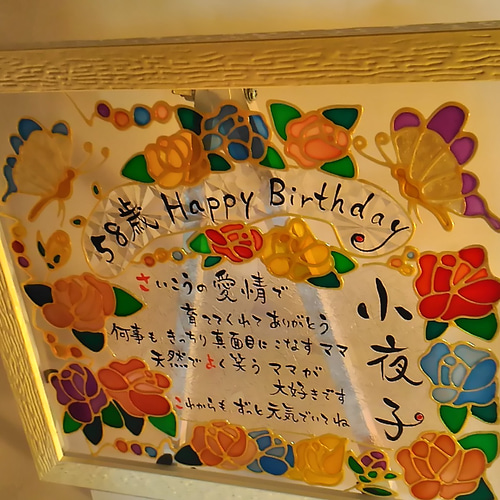 58歳 Happy Birthday
小夜子
さいこうの愛情で
育ててくれてありがとう
何事もきっちり真面目にこなすママ
天然でよく笑うママが
大好きです
これからもずっと元気でいてね